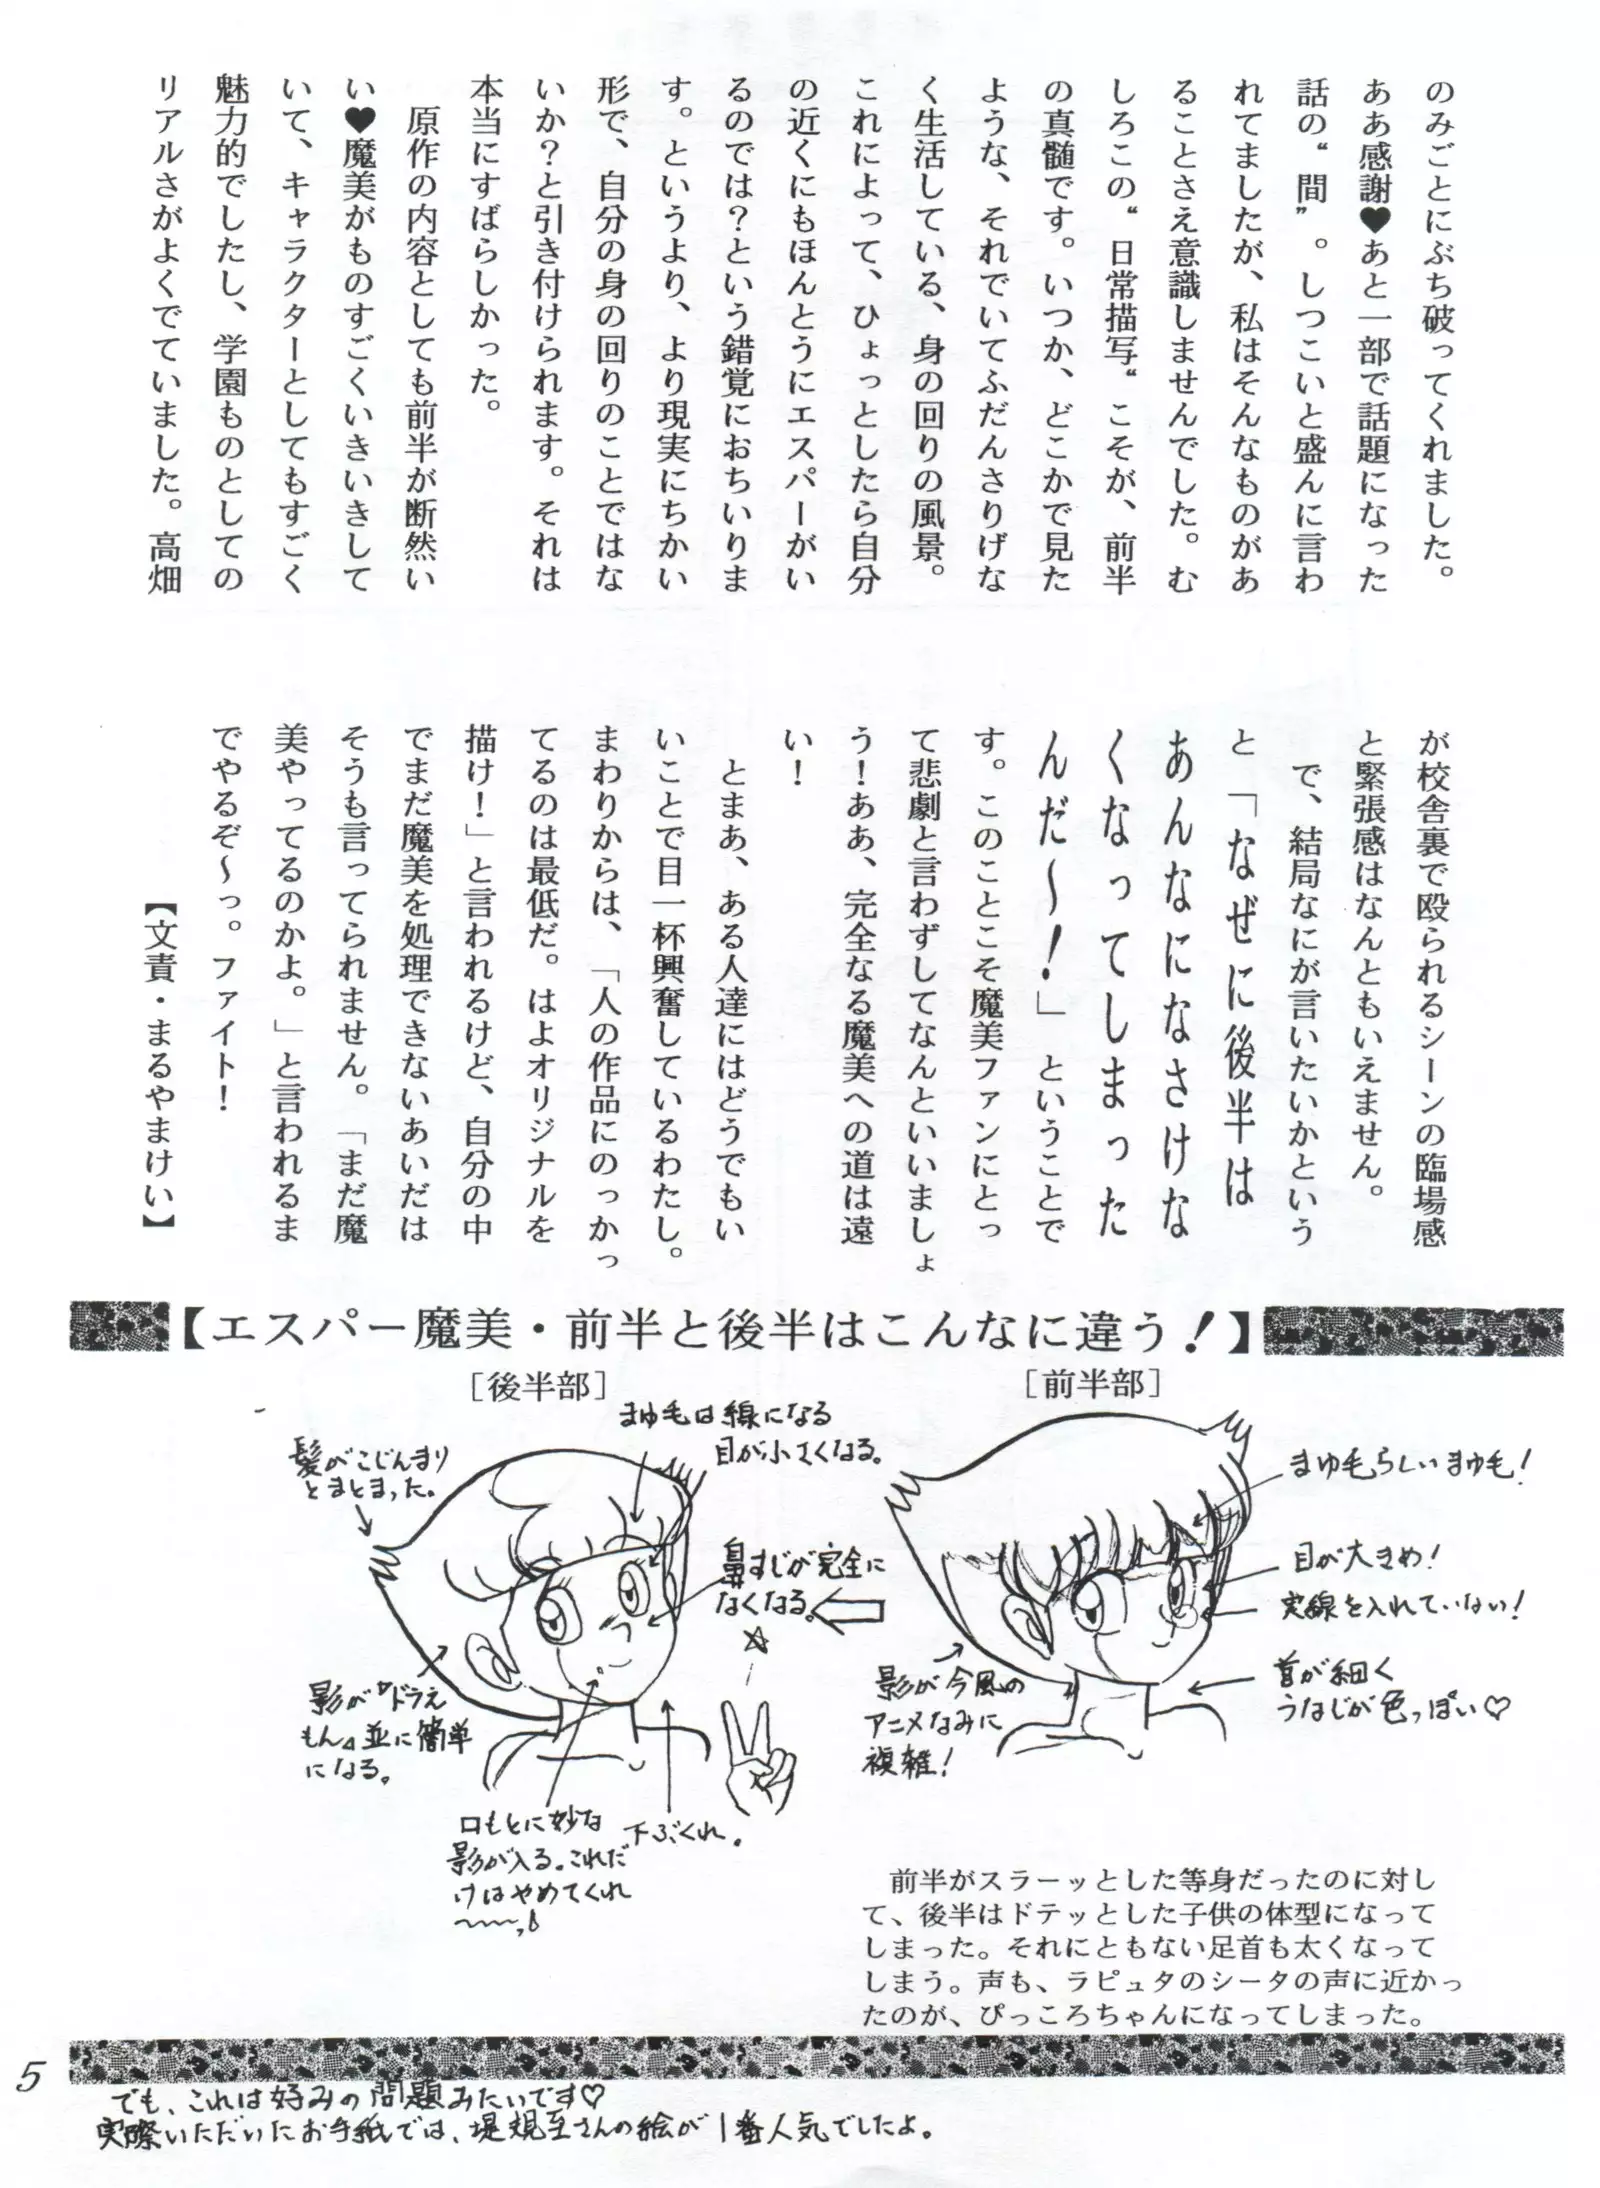 のみごとにぶち破ってくれました。
ああ感謝♥あと一部で話題になった
話の“間”。しつこいと盛んに言わ
れてましたが、私はそんなものがあ
ることさえ意識しませんでした。む
しろこの“日常描写“こそが、前半
の真髄です。いつか、どこかで見た
ような、それでいてふだんさりげな
く生活している、身の回りの風景。
これによって、ひょっとしたら自分
の近くにもほんとうにエスパーがい
るのでは?という錯覚におちいりま
す。というより、より現実にちかい
形で、自分の身の回りのことではな
いか?と引き付けられます。それは
本当にすばらしかった。
原作の内容としても前半が断然い
い♥魔美がものすごくいきいきして
いて、キャラクターとしてもすごく
魅力的でしたし、学園ものとしての
リアルさがよくでていました。高畑
が校舎裏で殴られるシーンの臨場感
と緊張感はなんともいえません。
で、結局なにが言いたいかという
と「なぜに後半は
あんなになさけな
くなってしまった
んだ~!」ということで
す。このことこそ魔美ファンにとっ
て悲劇と言わずしてなんといいましょ
う!ああ、完全なる魔美への道は遠
い!
とまあ、ある人達にはどうでもい
いことで目一杯興奮しているわたし。
まわりからは、「人の作品にのっかっ
てるのは最低だ。はよオリジナルを
描け!」と言われるけど、自分の中
でまだ魔美を処理できないあいだは
そうも言ってられません。「まだ魔
美やってるのかよ。」と言われるま
でやるぞ~っ。ファイト!
【文責・まるやまけい】
【エスパー魔美・前半と後半はこんなに違う!】
[前半部]
まゆ毛らしいまゆ毛!
目が大きめ!
実線を入れていない!
首が細く
うなじが色っぽい♡
影が今風の
アニメなみに
複雑!
[後半部]
まゆ毛は線になる
目が小さくなる。
髪がこじんまり
とまとまった。
鼻すじが完全に
なくなる。
影が『ドラえ
もん』並に簡単
になる。
口もとに妙な
影が入る。これだ
けはやめてくれ
〜〜〜っ
下ぶくれ。
前半がスラーッとした等身だったのに対し
て、後半はドテッとした子供の体型になって
しまった。それにともない足首も太くなって
しまう。声も、ラピュタのシータの声に近かっ
たのが、ぴっころちゃんになってしまった。
5
でも、これは好みの問題みたいです♡
実際いただいたお手紙では、堤規至さんの絵が1番人気でしたよ。